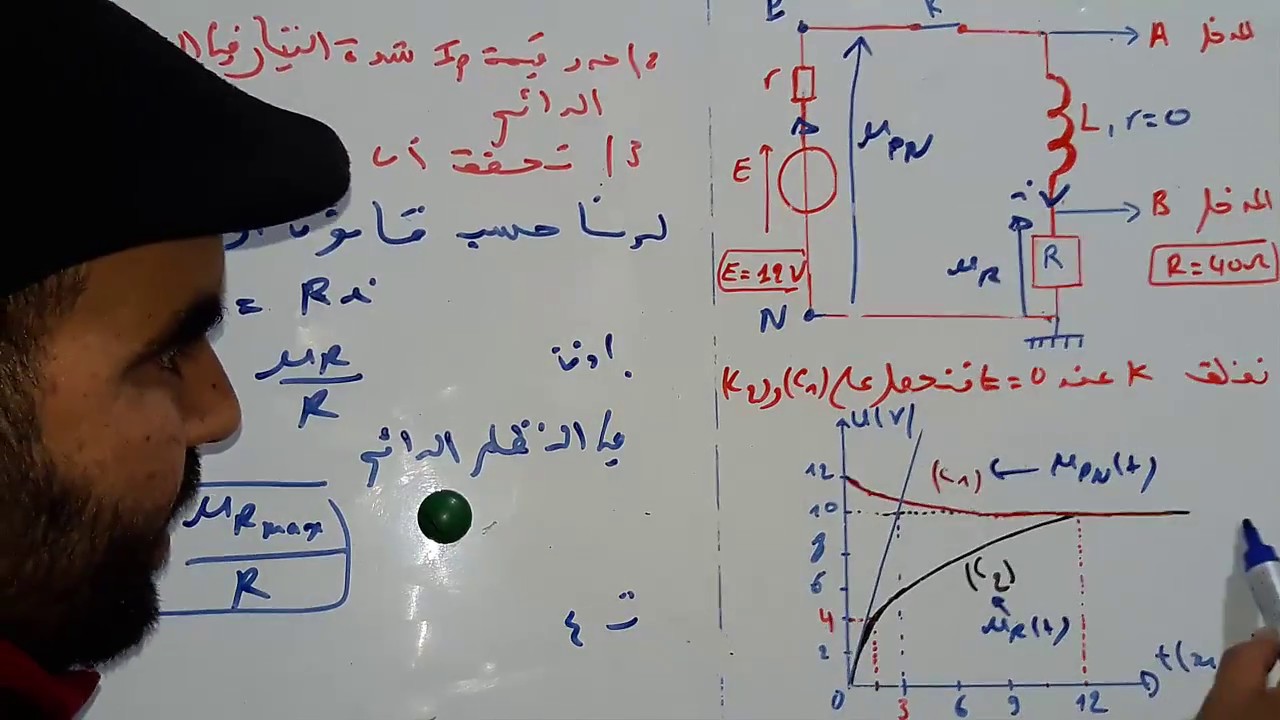 2) حدد قيمة Ip شدة التيار في
الدائم
3) تحقق أن
لدينا حسب قانون
= Ri
إذن
uR
R
في النظام الدائم
uRmax
R
ت ع
K
r
E
uPN
E=12V
N
A المدخل
L, r=0
i
B المدخل
uR
R
R=40Ω
نغلق K عند t=0 فنحصل على (C1) و (C2)
u(V)
12
10
8
6
4
2
0
3
6
9
12
(C1) ← uPN(t)
(C2)
uR(t)